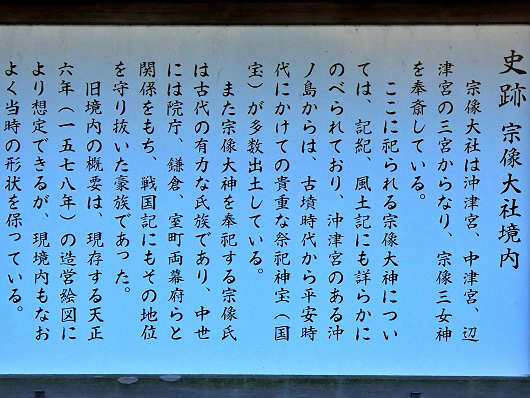 史跡 宗像大社境内
宗像大社は沖津宮、中津宮、辺
津宮の三宮からなり、宗像三女神
を奉斎している。
ここに祀られる宗像大神につい
ては、記紀、風土記にも詳らかに
のべられており、沖津宮のある沖
ノ島からは、古墳時代から平安時
代にかけての貴重な祭祀神宝（国
宝）が多数出土している。
また宗像大神を奉祀する宗像氏
は古代の有力な氏族であり、中世
には院庁、鎌倉、室町両幕府らと
関係をもち、戦国記にもその地位
を守り抜いた豪族であった。
旧境内の概要は、現存する天正
六年（一五七八年）の造営絵図に
より想定できるが、現境内もなお
よく当時の形状を保っている。